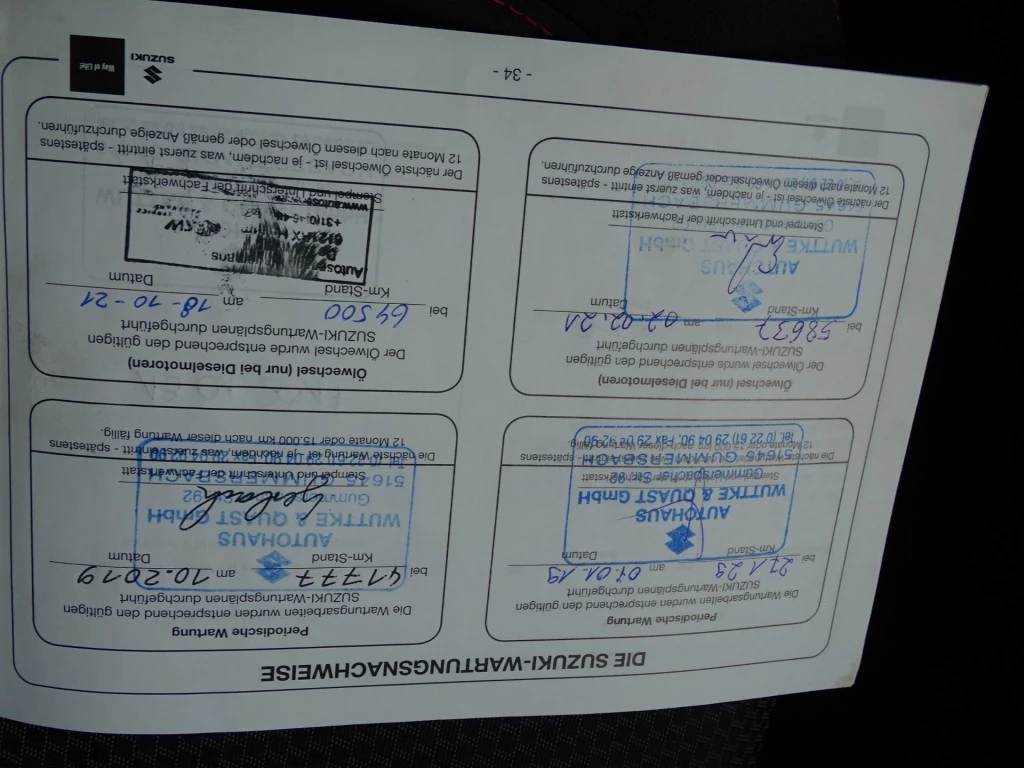 DIE SUZUKI-WARTUNGSNACHWEISE
Periodische Wartung
Die Wartungsarbeiten wurden entsprechend den gültigen
SUZUKI-Wartungsplänen durchgeführt
bei 27123 am 07.01.19
Km-Stand Datum
AUTOHAUS
WUTTKE & QUAST GmbH
Gummersbacher Str. 92
51645 GUMMERSBACH
Tel. (0 22 61) 29 04 90, Fax 29 04 92 90
Periodische Wartung
Die Wartungsarbeiten wurden entsprechend den gültigen
SUZUKI-Wartungsplänen durchgeführt
bei 41777 am 10.2019
Km-Stand Datum
AUTOHAUS
WUTTKE & QUAST GmbH
92
GUMMERSBACH
Stempel und Unterschrift der Fachwerkstatt
Die nächste Wartung ist - je nachdem, was zuerst eintritt - spätestens
12 Monate oder 15.000 km nach dieser Wartung fällig.
Ölwechsel (nur bei Dieselmotoren)
Der Ölwechsel wurde entsprechend den gültigen
SUZUKI-Wartungsplänen durchgeführt
bei 58637 am 02.02.21
Km-Stand Datum
AUTOHAUS
WUTTKE & QUAST GmbH
Stempel und Unterschrift der Fachwerkstatt
Der nächste Ölwechsel ist - je nachdem, was zuerst eintritt - spätestens
12 Monate nach diesem Ölwechsel oder gemäß Anzeige durchzuführen.
Ölwechsel (nur bei Dieselmotoren)
Der Ölwechsel wurde entsprechend den gültigen
SUZUKI-Wartungsplänen durchgeführt
bei 64500 am 18-10-21
Km-Stand Datum
www.autose
Stempel und Unterschrift der Fachwerkstatt
Der nächste Ölwechsel ist - je nachdem, was zuerst eintritt - spätestens
12 Monate nach diesem Ölwechsel oder gemäß Anzeige durchzuführen.
- 34 -
SUZUKI
Way of Life!